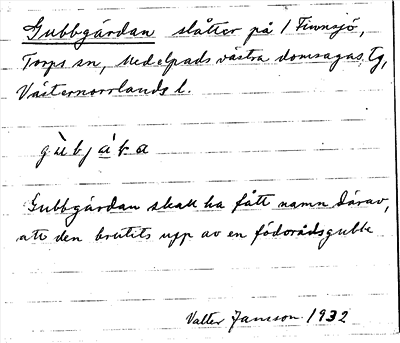 Gubbgárdan slåtter på 1 Finnsjö,
Torps sn, Medelpads västra domsagas tg,
Västernorrlands l.
gùbjáka
Gubbgárdan skall ha fått namn därav,
att den brutits upp av en födorådsgubbe
Valter Jansson 1932